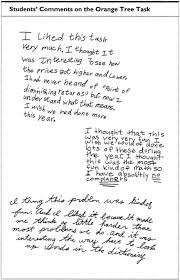 Students' Comments on the Orange Tree Task
I liked this task
very much, I thought it
was interesting to see
how the prices got higher and lower.
I had never heard of "Point of
diminishing returns" but now I
understand what that means.
I wish we had done more
this year.
I thought that this
was very very fun I
wish we would of done
lots of these during
the year I thought
this was the most
fun kind of math so
I have absolutly no
complaints
I thing this problem was kinda
fun. And I liked it becaus it made
me think a little harder than
most problems we do. and it was
interesting the way have to look
up words in the dictionary